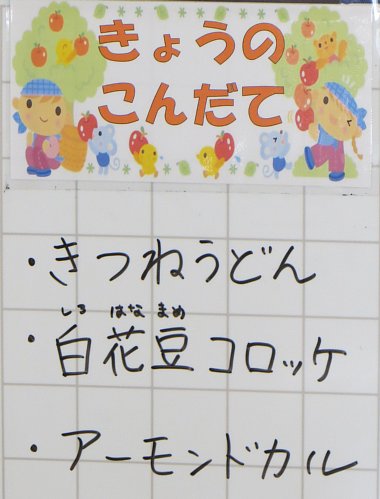 きょうの
こんだて
・きつねうどん
しろ はな まめ
・白花豆コロッケ
・アーモンドカル